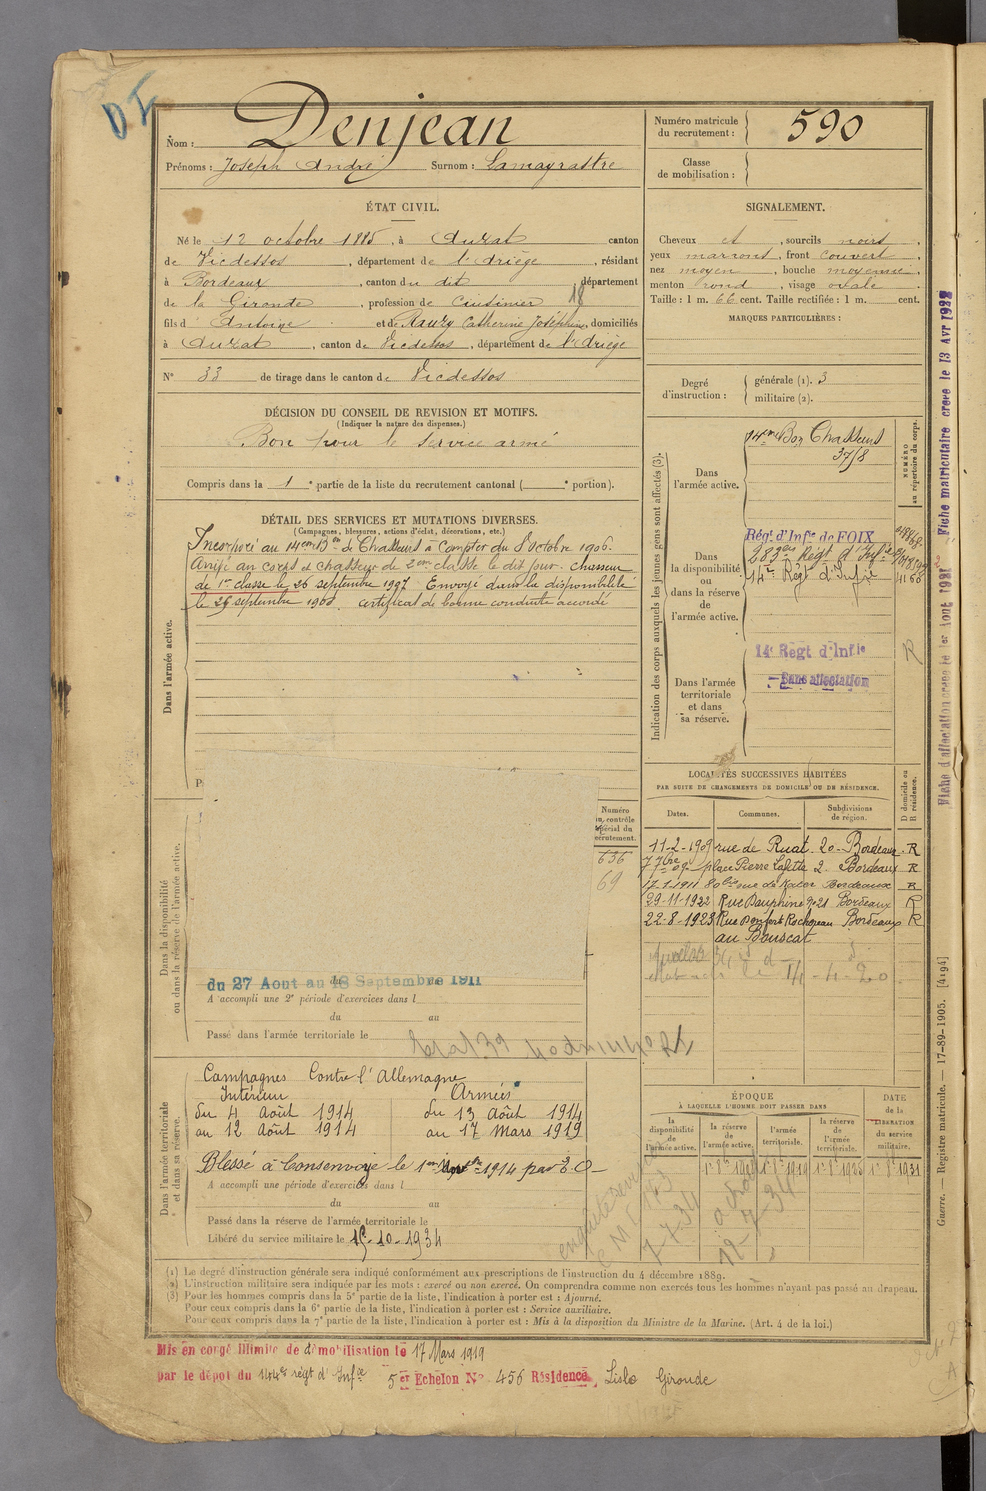 DI
Nom : Denjean
Prénoms : Joseph André Surnom : Lamayrastre
Numéro matricule du recrutement : 590
Classe de mobilisation :
ÉTAT CIVIL.
Né le 12 octobre 1885, à Auzat canton
de Vicdessos, département de l'Ariège, résidant
à Bordeaux, canton du dit, département
de la Gironde, profession de Cuisinier 18
fils d' Antoine et de Raury Catherine Joséphine, domiciliés
à Auzat, canton de Vicdessos, département de l'Ariège
N° 33 de tirage dans le canton de Vicdessos
SIGNALEMENT.
Cheveux et, sourcils noirs,
yeux marrons, front couvert,
nez moyen, bouche moyenne,
menton rond, visage ovale.
Taille : 1 m. 66 cent. Taille rectifiée : 1 m. cent.
MARQUES PARTICULIÈRES :
Degré d'instruction : générale (1). 3
militaire (2).
DÉCISION DU CONSEIL DE REVISION ET MOTIFS.
(Indiquer la nature des dispenses.)
Bon pour le service armé
Compris dans la 1e partie de la liste du recrutement cantonal ( e portion).
DÉTAIL DES SERVICES ET MUTATIONS DIVERSES.
(Campagnes, blessures, actions d'éclat, décorations, etc.)
Dans l'armée active.
Incorporé au 14em Bon de Chasseurs à compter du 8 octobre 1906.
Arrivé au corps et chasseur de 2em classe le dit jour. chasseur
de 1re classe le 26 septembre 1907 Envoyé dans la disponibilité
le 26 septembre 1908. certificat de bonne conduite accordé
P
Indication des corps auxquels les jeunes gens sont affectés (3).
NUMÉRO au répertoire du corps.
Dans l'armée active.
14me Bon Chasseurs
37/8
Dans la disponibilité ou dans la réserve de l'armée active.
Régt d'Infie de FOIX
283e Régt d'Infie
14e Régt d'Infie
Dans l'armée territoriale et dans sa réserve.
14e Régt d'Infie
Sans affectation
R
LOCALITÉS SUCCESSIVES HABITÉES
PAR SUITE DE CHANGEMENTS DE DOMICILE OU DE RÉSIDENCE.
Dates. Communes. Subdivisions de région. D domicile ou R résidence.
11-2-1909 rue de Ruat 20 Bordeaux R
7 7bre 09 place Pierre Lafitte 2 Bordeaux R
17-1-1911 Bordeaux R
29-11-1922 Rue Dauphine n°21 Bordeaux R
22-8-1923 Rue Denfert Rochereau Bordeaux R
au Bouscat
14-4-20
Dans la disponibilité ou dans la réserve de l'armée active.
Numéro
contrôle
spécial du
recrutement.
636
69
du 27 Aout au 18 Septembre 1911
A accompli une 2e période d'exercices dans l
du au
Passé dans l'armée territoriale le
Dans l'armée territoriale et dans sa réserve.
Campagnes Contre l'Allemagne
Intérieur Armées
du 4 Août 1914 du 13 Août 1914
au 12 Août 1914 au 17 Mars 1919
Blessé à Consenvoye le 1914 par E.O.
A accompli une période d'exercices dans l
du au
Passé dans la réserve de l'armée territoriale le
Libéré du service militaire le 15-10-1934
ÉPOQUE
À LAQUELLE L'HOMME DOIT PASSER DANS
la disponibilité de l'armée active. la réserve de l'armée active. l'armée territoriale. la réserve de l'armée territoriale.
DATE de la LIBÉRATION du service militaire.
7-7-34
12-7-34
(1) Le degré d'instruction générale sera indiqué conformément aux prescriptions de l'instruction du 4 décembre 1889.
(2) L'instruction militaire sera indiquée par les mots : exercé ou non exercé. On comprendra comme non exercés tous les hommes n'ayant pas passé au drapeau.
(3) Pour les hommes compris dans la 5e partie de la liste, l'indication à porter est : Ajourné.
Pour ceux compris dans la 6e partie de la liste, l'indication à porter est : Service auxiliaire.
Pour ceux compris dans la 7e partie de la liste, l'indication à porter est : Mis à la disposition du Ministre de la Marine. (Art. 4 de la loi.)
Mis en congé illimité de démobilisation le 17 Mars 1919
par le dépôt du 144e régt d'Infie 5er Echelon N° 456 Résidence Lisle Gironde
Guerre. — Registre matricule. — 17-89-1905. [4194]
Fiche matriculaire créée le 13 Avr
Fiche d'affectation créée le 1er Aout